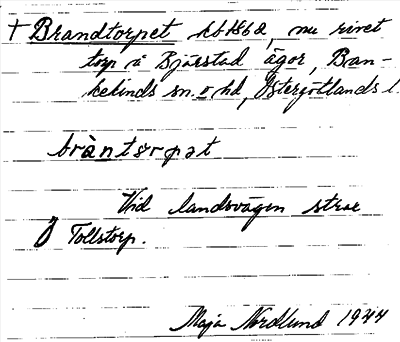 † Brandtorpet kb 1862, nu rivet
torp å Bjärstad ägor, Ban-
kekinds sn. o. hd, Östergötlands l.
bràntɔrpət
Vid landsvägen strax
Ö Tollstorp.
Maja Nordlund 1944